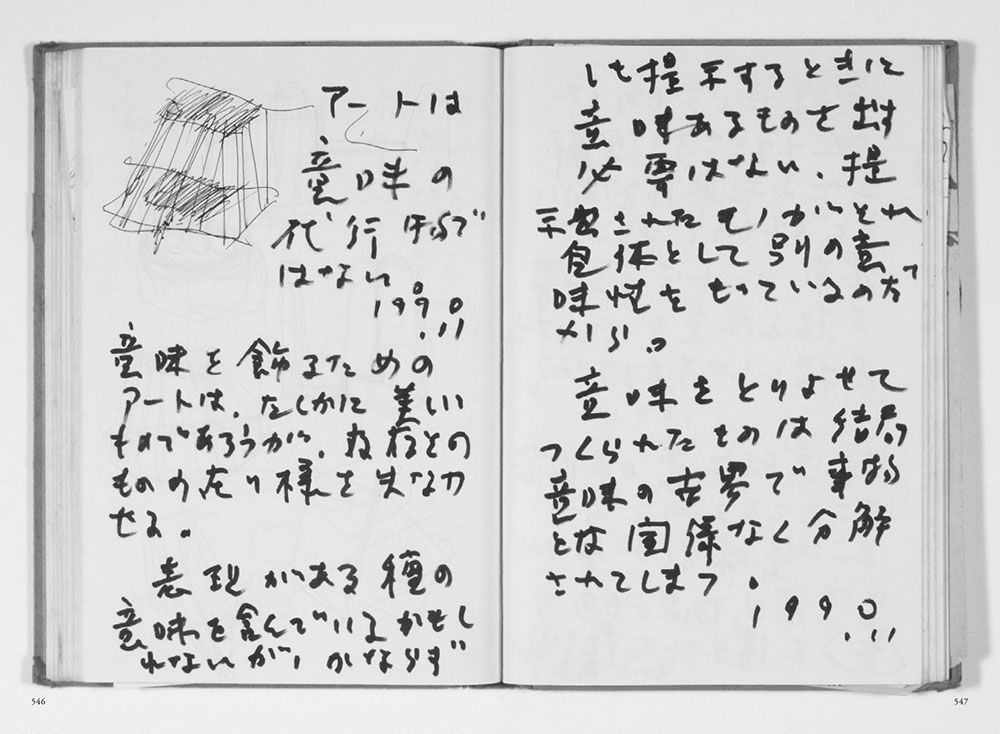 アートは
意味の
代行形で
はない
1990
.11
意味を飾るための
アートは、たしかに美しい
ものであろうが、
ものの在り様を失なわ
せる。
表現がある種の
意味を含んでいるかもし
れないが、かならず
しも提示するときに
意味あるものを出す
必要はない、提
示されたものがそれ
自体として別の意
味性をもっているのだ
から。
意味をとりよせて
つくられたものは結局
意味の世界で事物
となく分解
されてしまう。
1990
.11
546
547